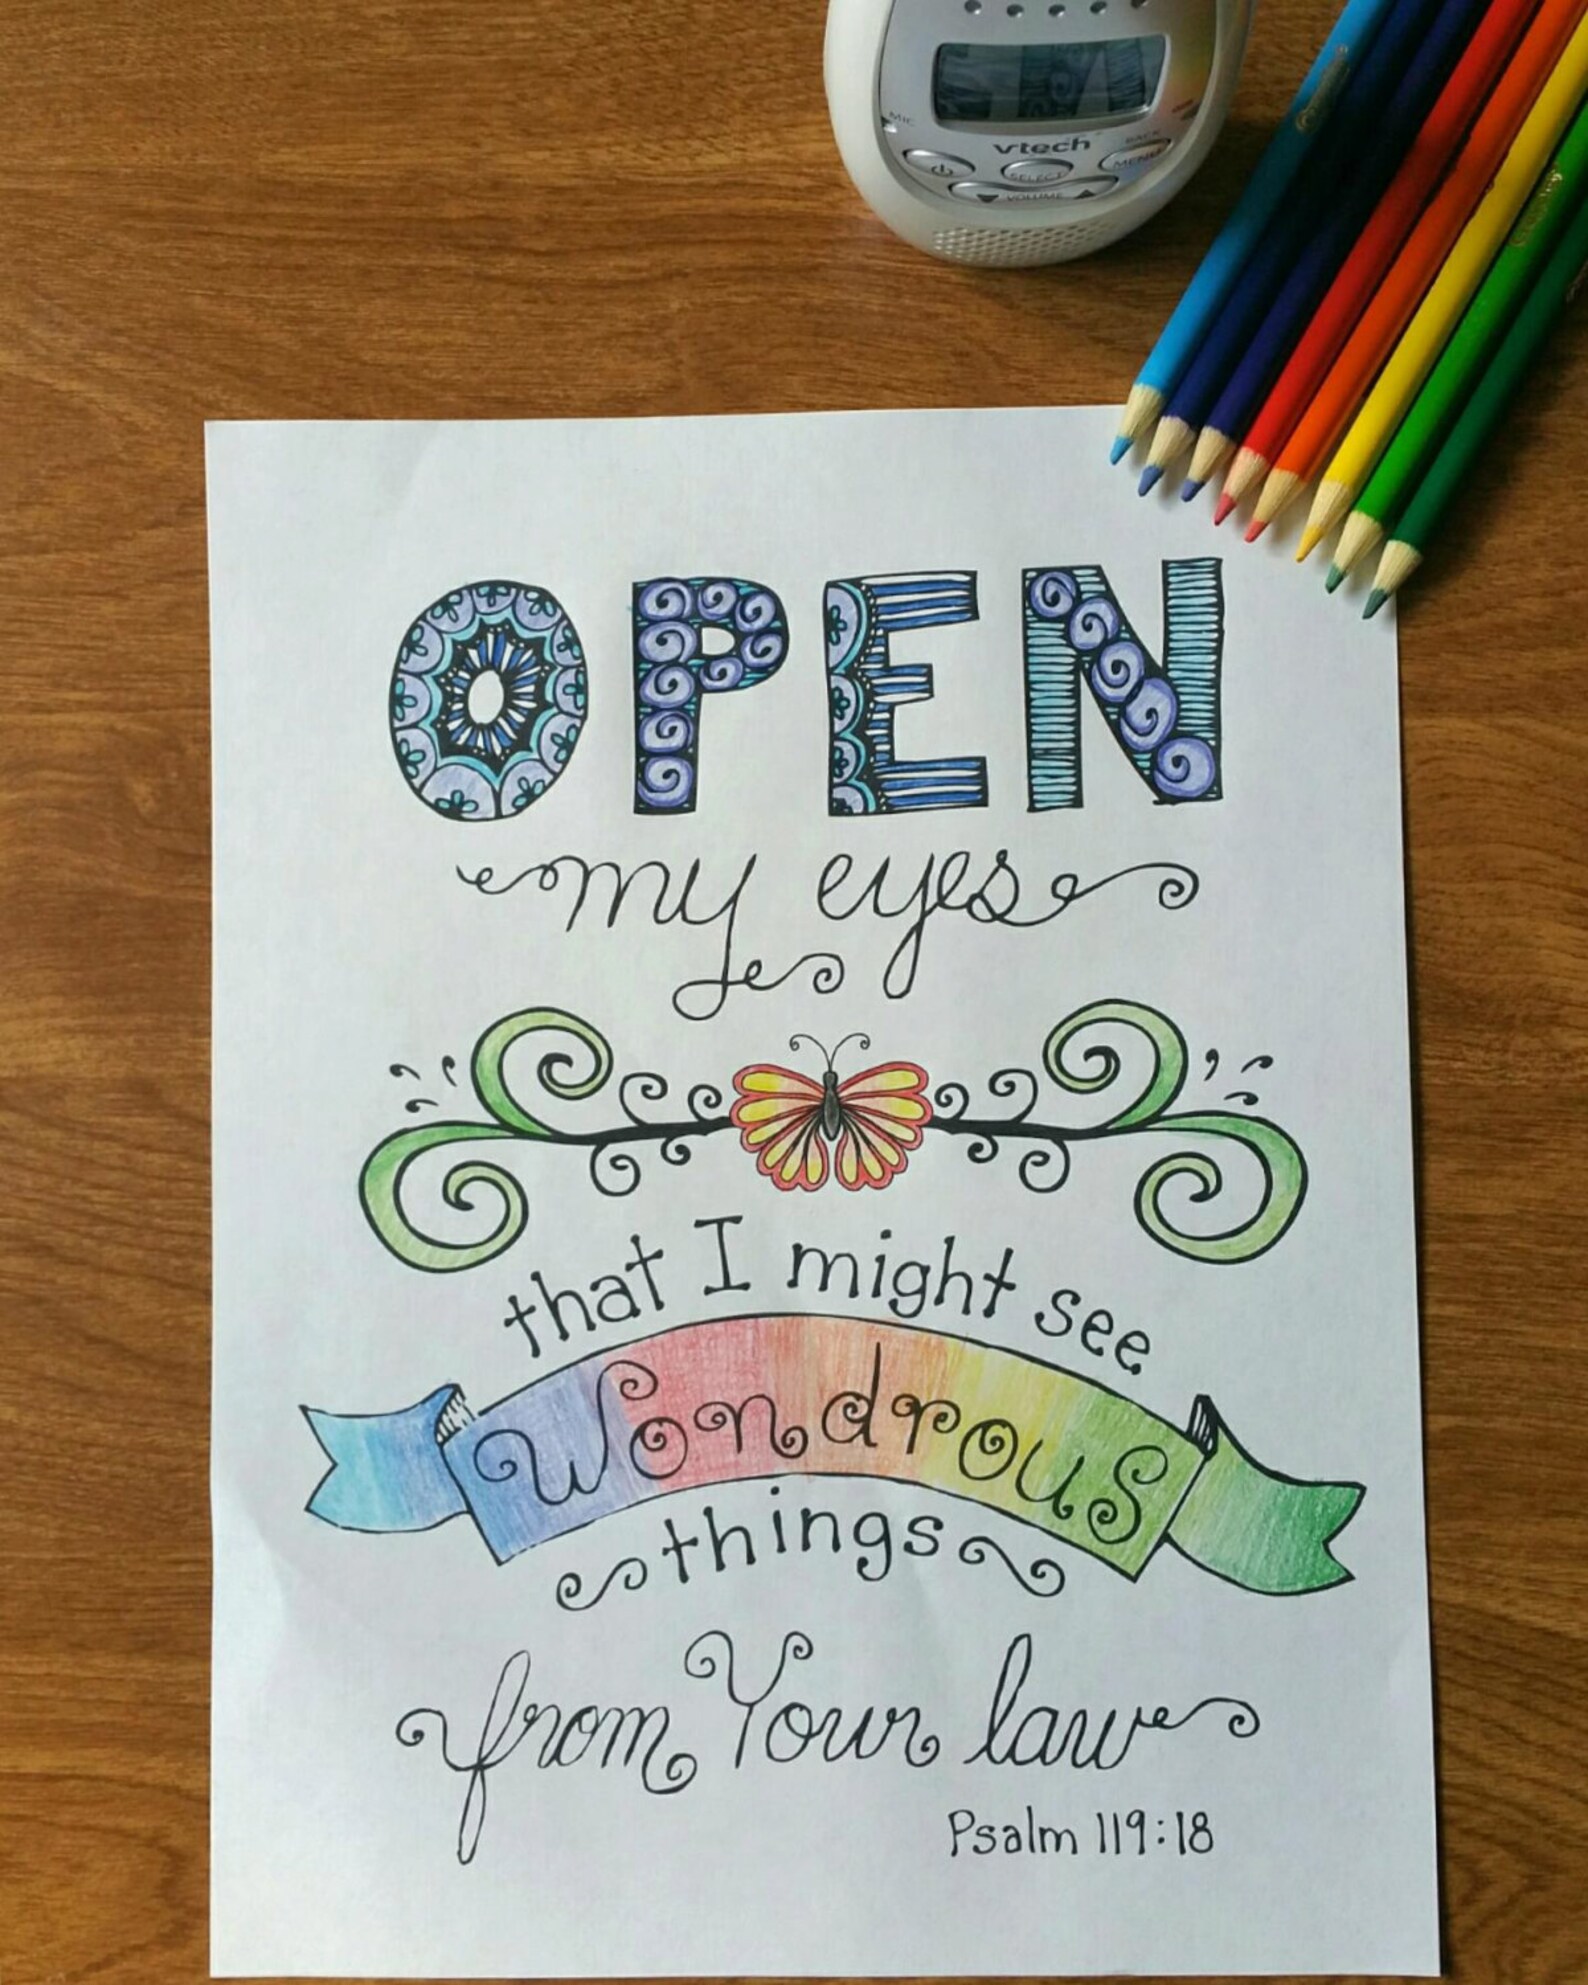 MIC
vtech
BACK
MENU
SELECT
VOLUME
OPEN
my eyes
that I might see
Wondrous
things
from Your law
Psalm 119:18